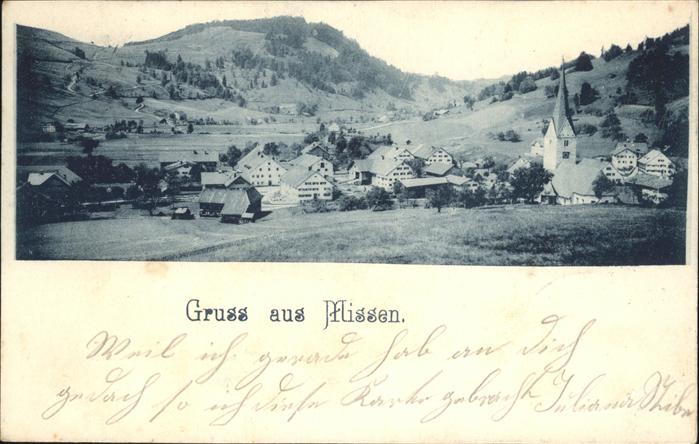 Gruss aus Missen.
Weil ich gerade hab an dich
gedach so ich diese Karte gebracht Juliana